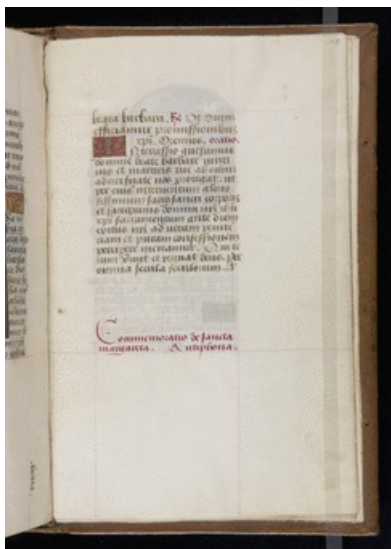 beata barbara. ꝶ Ut digni
efficiamur promissionibus
xpi. Oremus. oratio.
Intercessio quesumus
domine beate barbare virgi
nis et martiris tue ab omni
adversitate nos protegat. ut
per eius interventum glorio
sissimum sacrosancti corporis
et sanguinis domini nri ihu
xpi sacramentum ante diem
exitus nri ad veram peniten
ciam et puram confessionem
percipere mereamur. Qui te
cum vivit et regnat deus. Per
omnia secula seculorum
Commemoratio de sancta
margareta. Antiphona.